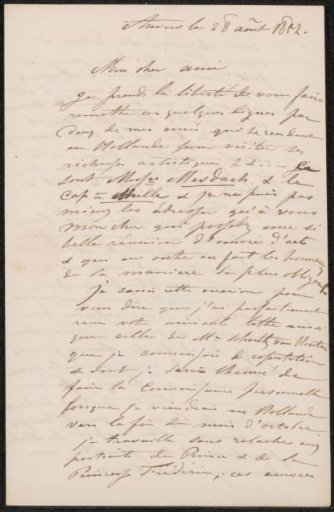 Anvers le 28 août 1852.
Mon cher ami
Je prends la liberté de vous faire
remettre ces quelques lignes par
deux de mes amis qui se rendent
en Hollande pour visiter ses
richesses artistiques
sont Mess. & le
Cap & je ne puis pas
mieux les adresser qu'à vous
mon cher qui possédez une si
belle reunion d'oeuvres d'art
& qui en outre en fait les honneurs
de la maniere la plus obligeante
je saisis cette occasion pour
vous dire que j'ai parfaitement
reçu votre lettre ainsi
que celle de Mr
que je connais de reputation
& dont je serais charmé de
faire la Connaissance personnelle
lorsque je viendrai en Hollande
vers la fin du mois d'octobre
je travaille sans relache aux
portraits du Prince & de la
Princesse Frédéric, ces oeuvres